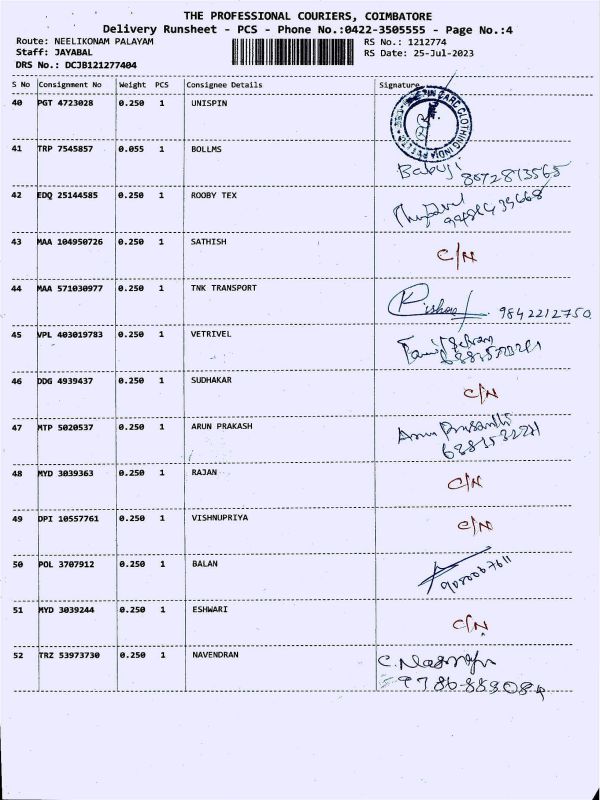 THE PROFESSIONAL COURIERS, COIMBATORE
Delivery Runsheet - PCS - Phone No.:0422-3505555 - Page No.:4
Route: NEELIKONAM PALAYAM RS No.: 1212774
Staff: JAYABAL RS Date: 25-Jul-2023
DRS No.: DCJB121277404
S No Consignment No Weight PCS Consignee Details Signature
40 PGT 4723028 0.250 1 UNISPIN
41 TRP 7545857 0.055 1 BOLLMS
Babuji 8072873565
42 EDQ 25144585 0.250 1 ROOBY TEX
43 MAA 104950726 0.250 1 SATHISH
C/N
44 MAA 571030977 0.250 1 TNK TRANSPORT
Kishore 9842212750
45 VPL 403019783 0.250 1 VETRIVEL
46 DDG 4939437 0.250 1 SUDHAKAR
C/N
47 MTP 5020537 0.250 1 ARUN PRAKASH
Arun
48 MYD 3039363 0.250 1 RAJAN
C/N
49 DPI 10557761 0.250 1 VISHNUPRIYA
C/N
50 POL 3707912 0.250 1 BALAN
51 MYD 3039244 0.250 1 ESHWARI
C/N
52 TRZ 53973730 0.250 1 NAVENDRAN